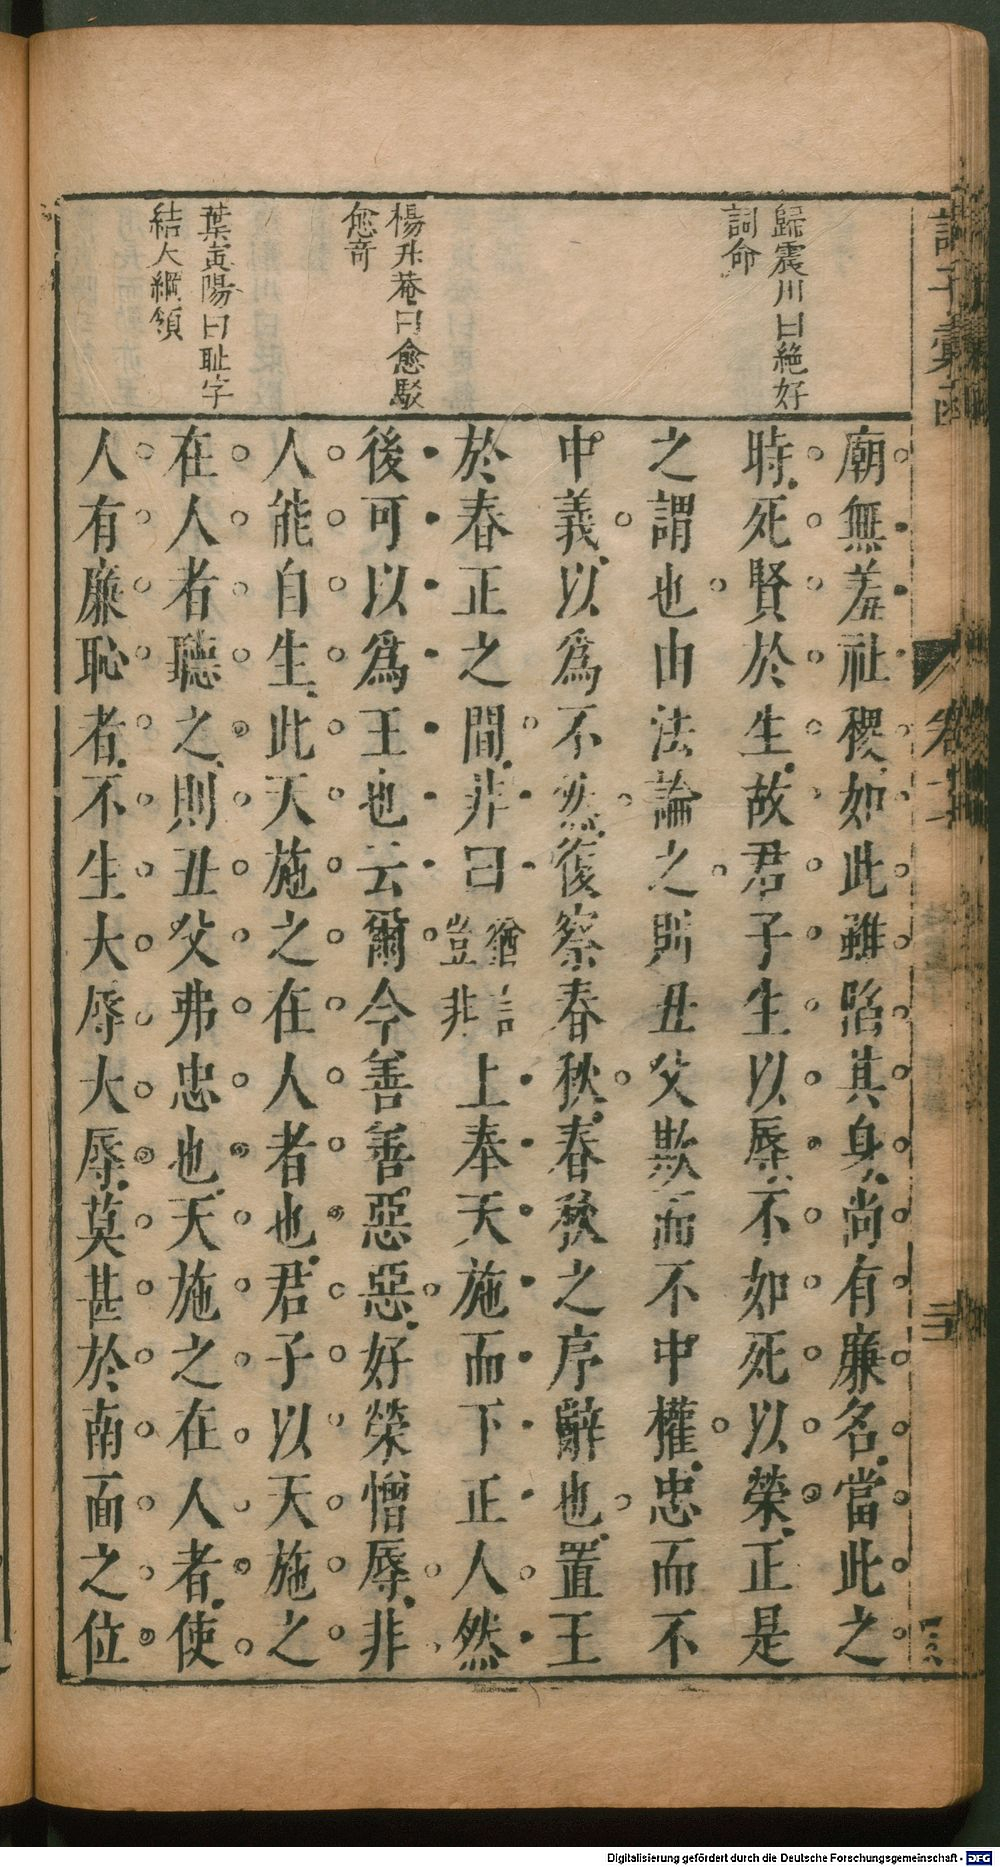 歸震川曰絶好
詞命
楊升菴曰愈駁
愈奇
葉寅陽曰耻字
結大綱領
廟無羞社稷如此雖陷其身尚有廉名當此之
時死賢於生故君子生以辱不如死以榮正是
之謂也由法論之則丑父欺而不中權忠而不
中義以爲不然復察春秋春秋之序辭也置王
於春正之間非曰猶言豈非上奉天施而下正人然
後可以爲王也云爾今善善惡惡好榮憎辱非
人能自生此天施之在人者也君子以天施之
在人者聽之則丑父弗忠也天施之在人者使
人有廉恥者不生大辱大辱莫甚於南面之位
Digitalisierung gefördert durch die Deutsche Forschungsgemeinschaft - DFG